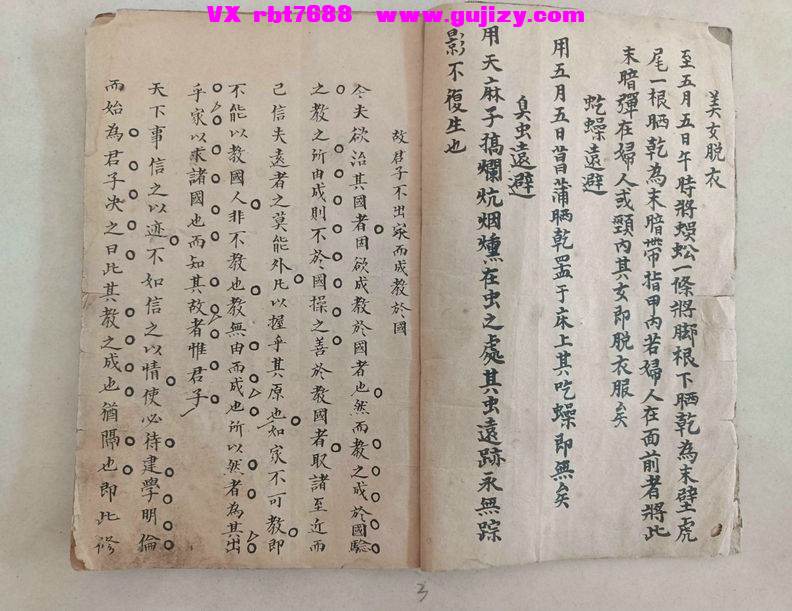 VX rbt7688 www.gujizy.com
美女脱衣
至五月五日午時將蜈蚣一條將脚根下晒乾為末壁虎
尾一根晒乾為末暗帶指甲內若婦人在面前者將此
末暗彈在婦人或頸內其女即脱衣服矣
虼蟆遠避
用五月五日菖蒲晒乾置于床上其吃蟆即無矣
臭虫遠避
用天麻子搞爛炕烟燻在虫之處其虫遠跡永無踪
影不復生也
故君子不出家而成教於國
今夫欲治其國者因欲成教於國者也然而教之成於國騐
之教之所由成則不於國操之善於教國者取諸至近而
己信夫遠者之莫能外凡以握乎其原也如家不可教即
不能以教國人非不教也教無由而成也所以然者為其出
乎家以求諸國也而知其故者惟君子
天下事信之以迹不如信之以情使必待建學明倫
而始為君子决之曰此其教之成也猶隔也即此修
3